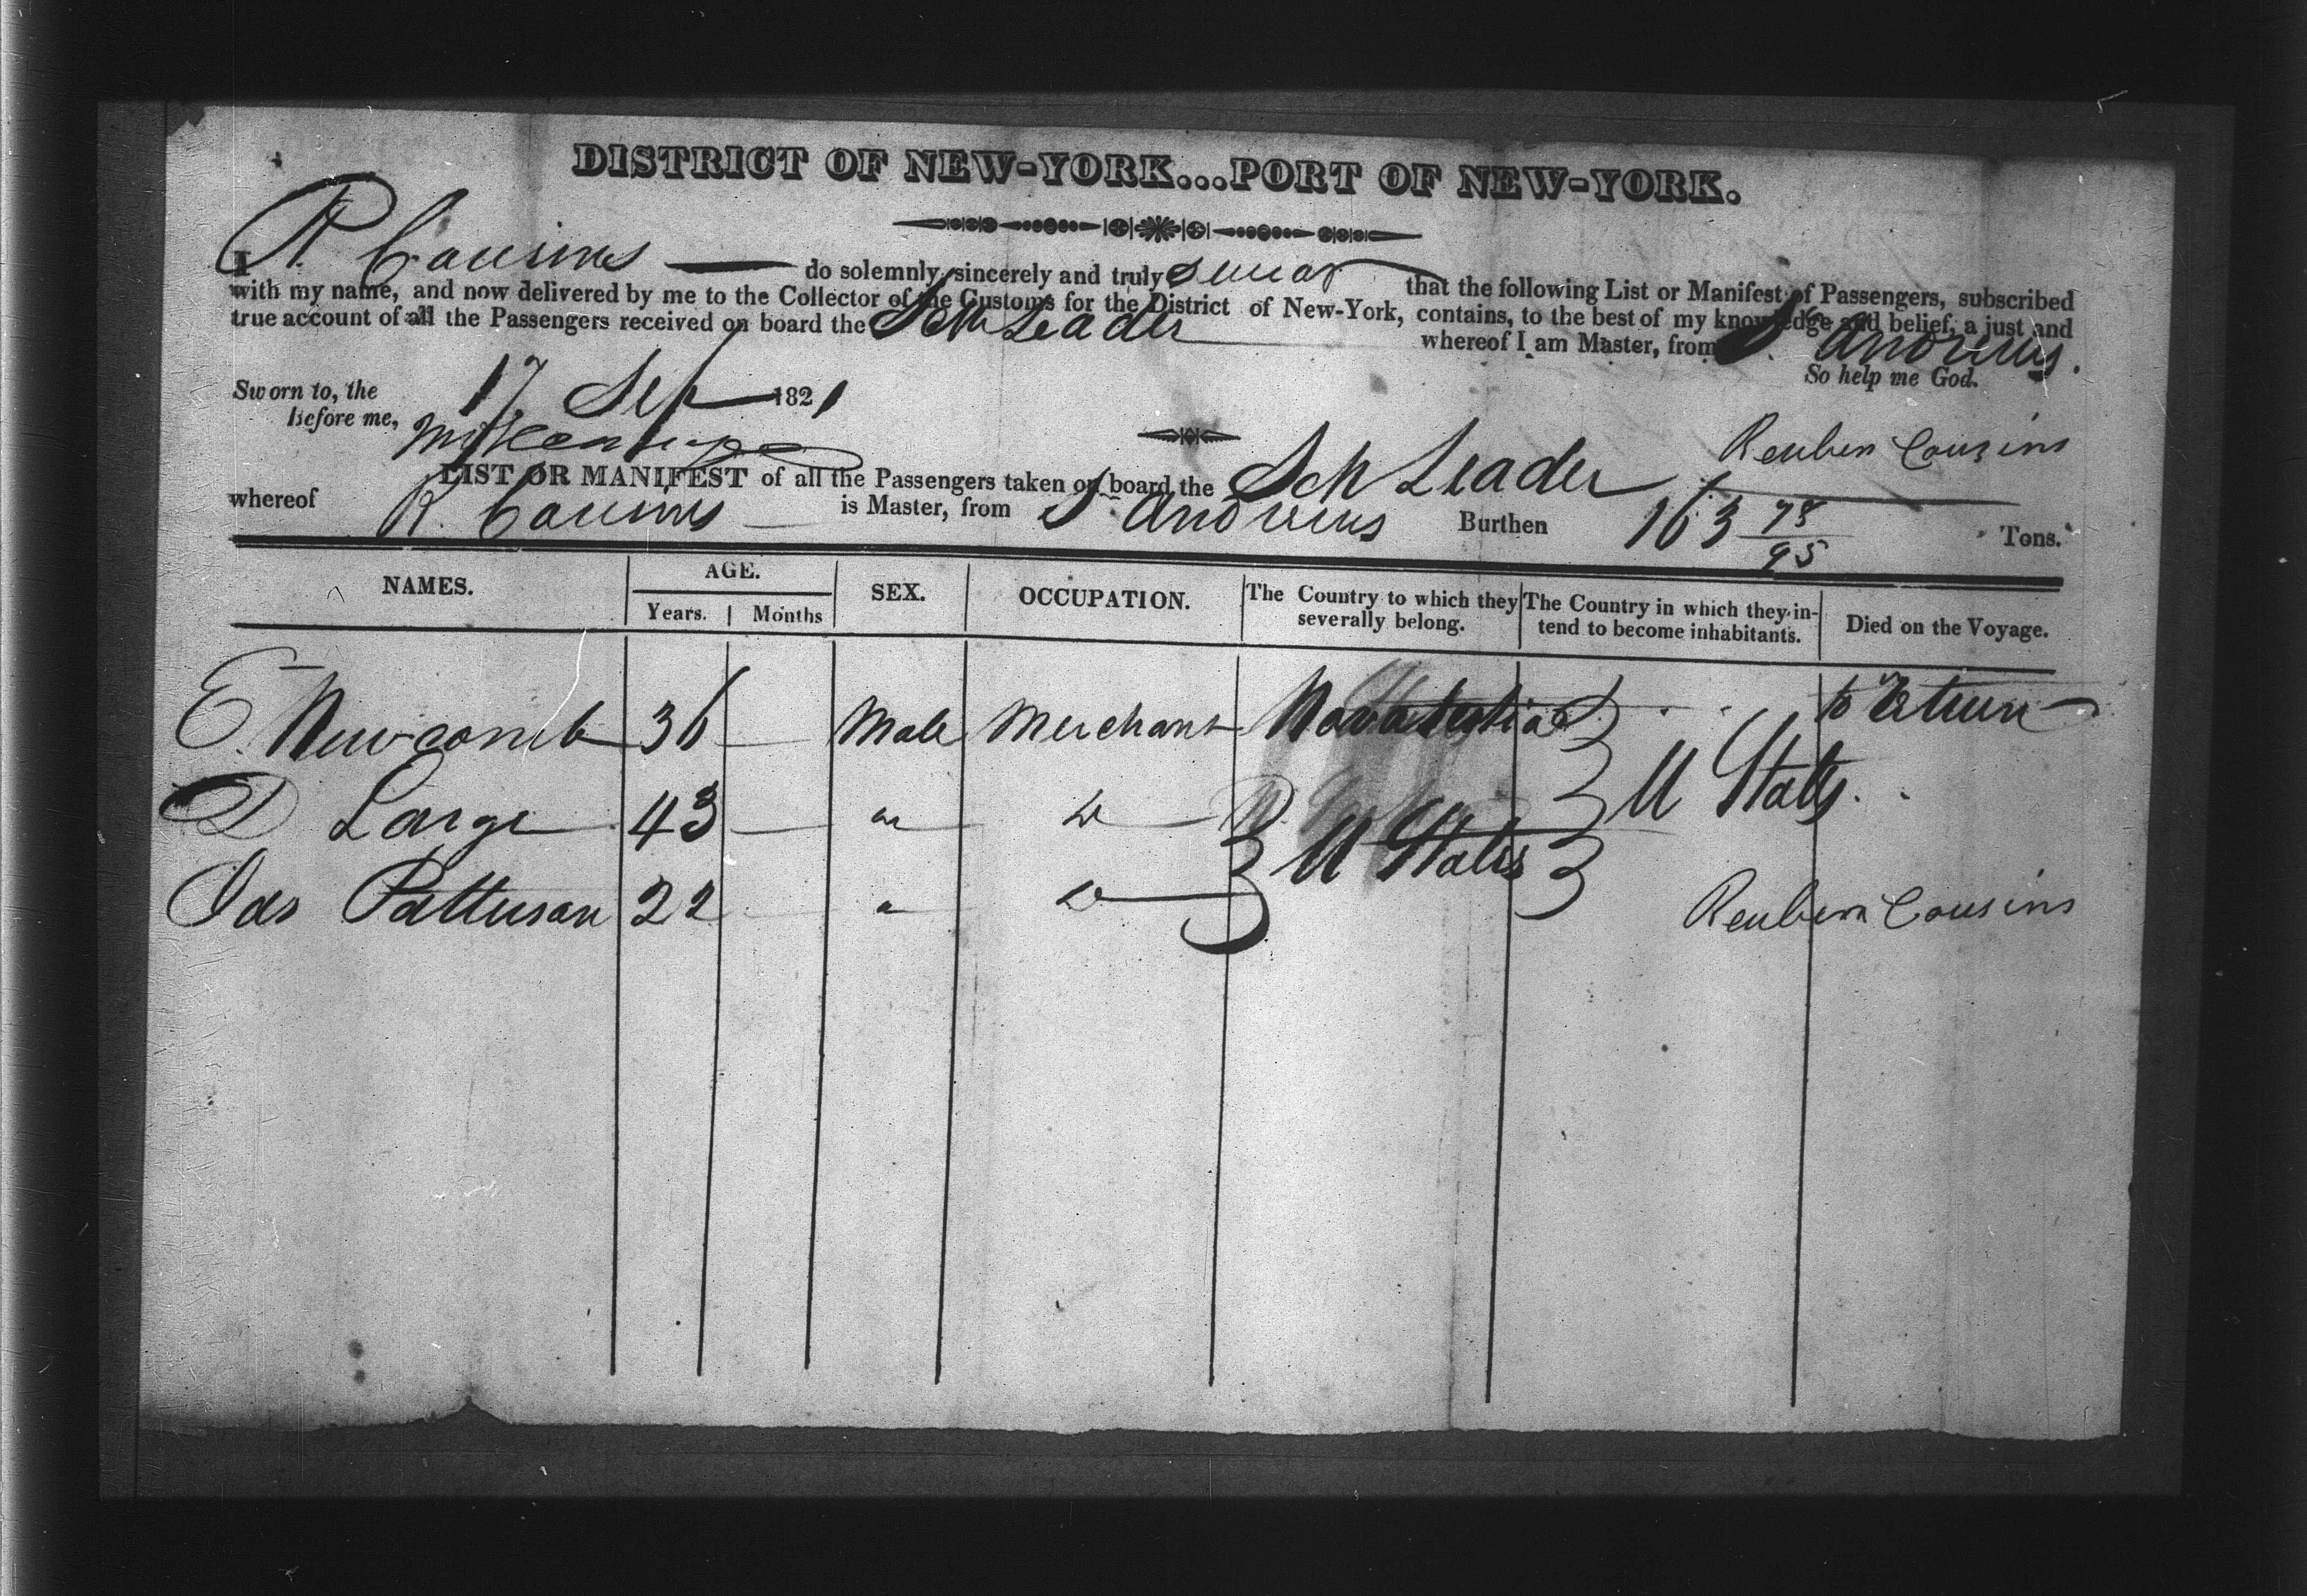 DISTRICT OF NEW-YORK...PORT OF NEW-YORK.
I R. Cousins do solemnly, sincerely and truly swear that the following List or Manifest of Passengers, subscribed
with my name, and now delivered by me to the Collector of the Customs for the District of New-York, contains, to the best of my knowledge and belief, a just and
true account of all the Passengers received on board the Sch Leader whereof I am Master, from St Andrews.
So help me God.
Sworn to, the 17 Sep 1821
Before me,
Reuben Cousins
LIST OR MANIFEST of all the Passengers taken on board the Sch Leader
whereof R. Cousins is Master, from St Andrews Burthen 163 78/95 Tons.
NAMES. AGE. SEX. OCCUPATION. The Country to which they severally belong. The Country in which they intend to become inhabitants. Died on the Voyage.
Years. Months
E. Newcomb 36 Male Merchant to return
D Large 43 U States
Jas Patterson 22 U States
Reuben Cousins